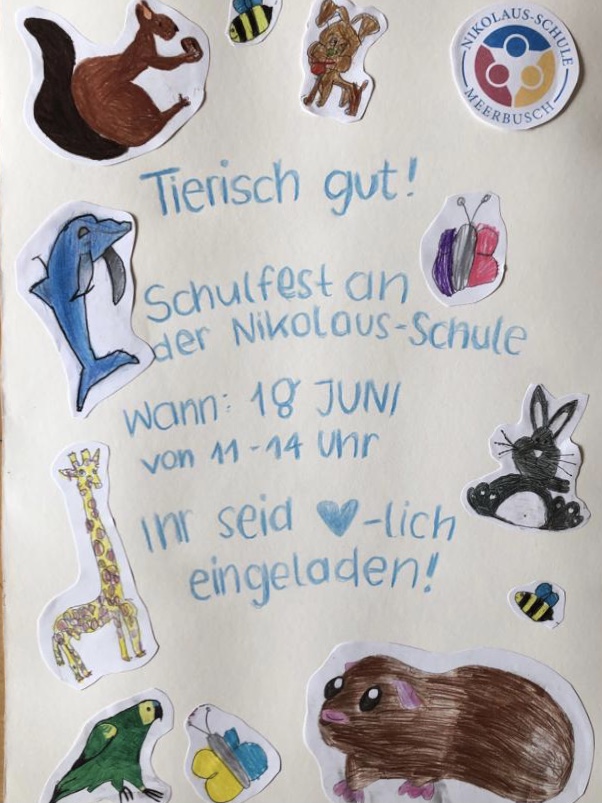 NIKOLAUS-SCHULE
MEERBUSCH
Tierisch gut!
Schulfest an
der Nikolaus-Schule
Wann: 18 JUNI
von 11-14 Uhr
Ihr seid ♥-lich
eingeladen!